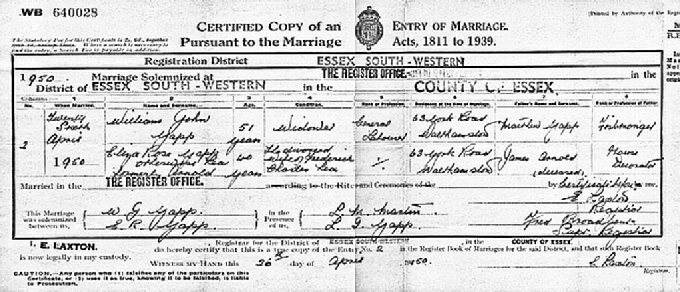 WB 640028
CERTIFIED COPY of an ENTRY OF MARRIAGE.
Pursuant to the Marriage Acts, 1811 to 1939.
[Printed by Authority of the
The Statutory Fee for this Certificate is
Registration District ESSEX SOUTH-WESTERN
1950. Marriage Solemnized at THE REGISTER OFFICE in the
District of ESSEX SOUTH-WESTERN in the COUNTY OF ESSEX
Columns 1 2 3 4 5 6 7 8
No. When Married. Name and Surname. Age. Condition. Rank or Profession. Residence at the time of Marriage. Father's Name and Surname. Rank or Profession of Father.
2 Twenty Sixth April 1950
William John Yapp 51 years Widower General Labourer 63 York Road Walthamstow Yapp Fishmonger
Eliza Rose Yapp otherwise Lea formerly Arnold 40 years Divorced Wife of Frederick Charles Lea 63 York Road Walthamstow James Arnold (deceased) House Decorator
Married in the THE REGISTER OFFICE. according to the Rites and Ceremonies of the by Certificate before me,
This Marriage was solemnized between us, W J Yapp. E. R. Yapp. in the Presence of us, L. M. Martin L. G. Yapp.
E Laxton Registrar
Supt. Registrar
I, E. LAXTON. Registrar for the District of ESSEX SOUTH-WESTERN, in the COUNTY OF ESSEX
do hereby certify that this is a true copy of the Entry No. 2 in the Register Book of Marriages for the said District, and that such Register Book
is now legally in my custody.
WITNESS MY HAND this 26th day of April 1950.
E. Laxton
Registrar.
CAUTION.—Any person who (1) falsifies any of the particulars on this
Certificate, or (2) uses it as true, knowing it to be falsified, is liable
to Prosecution.